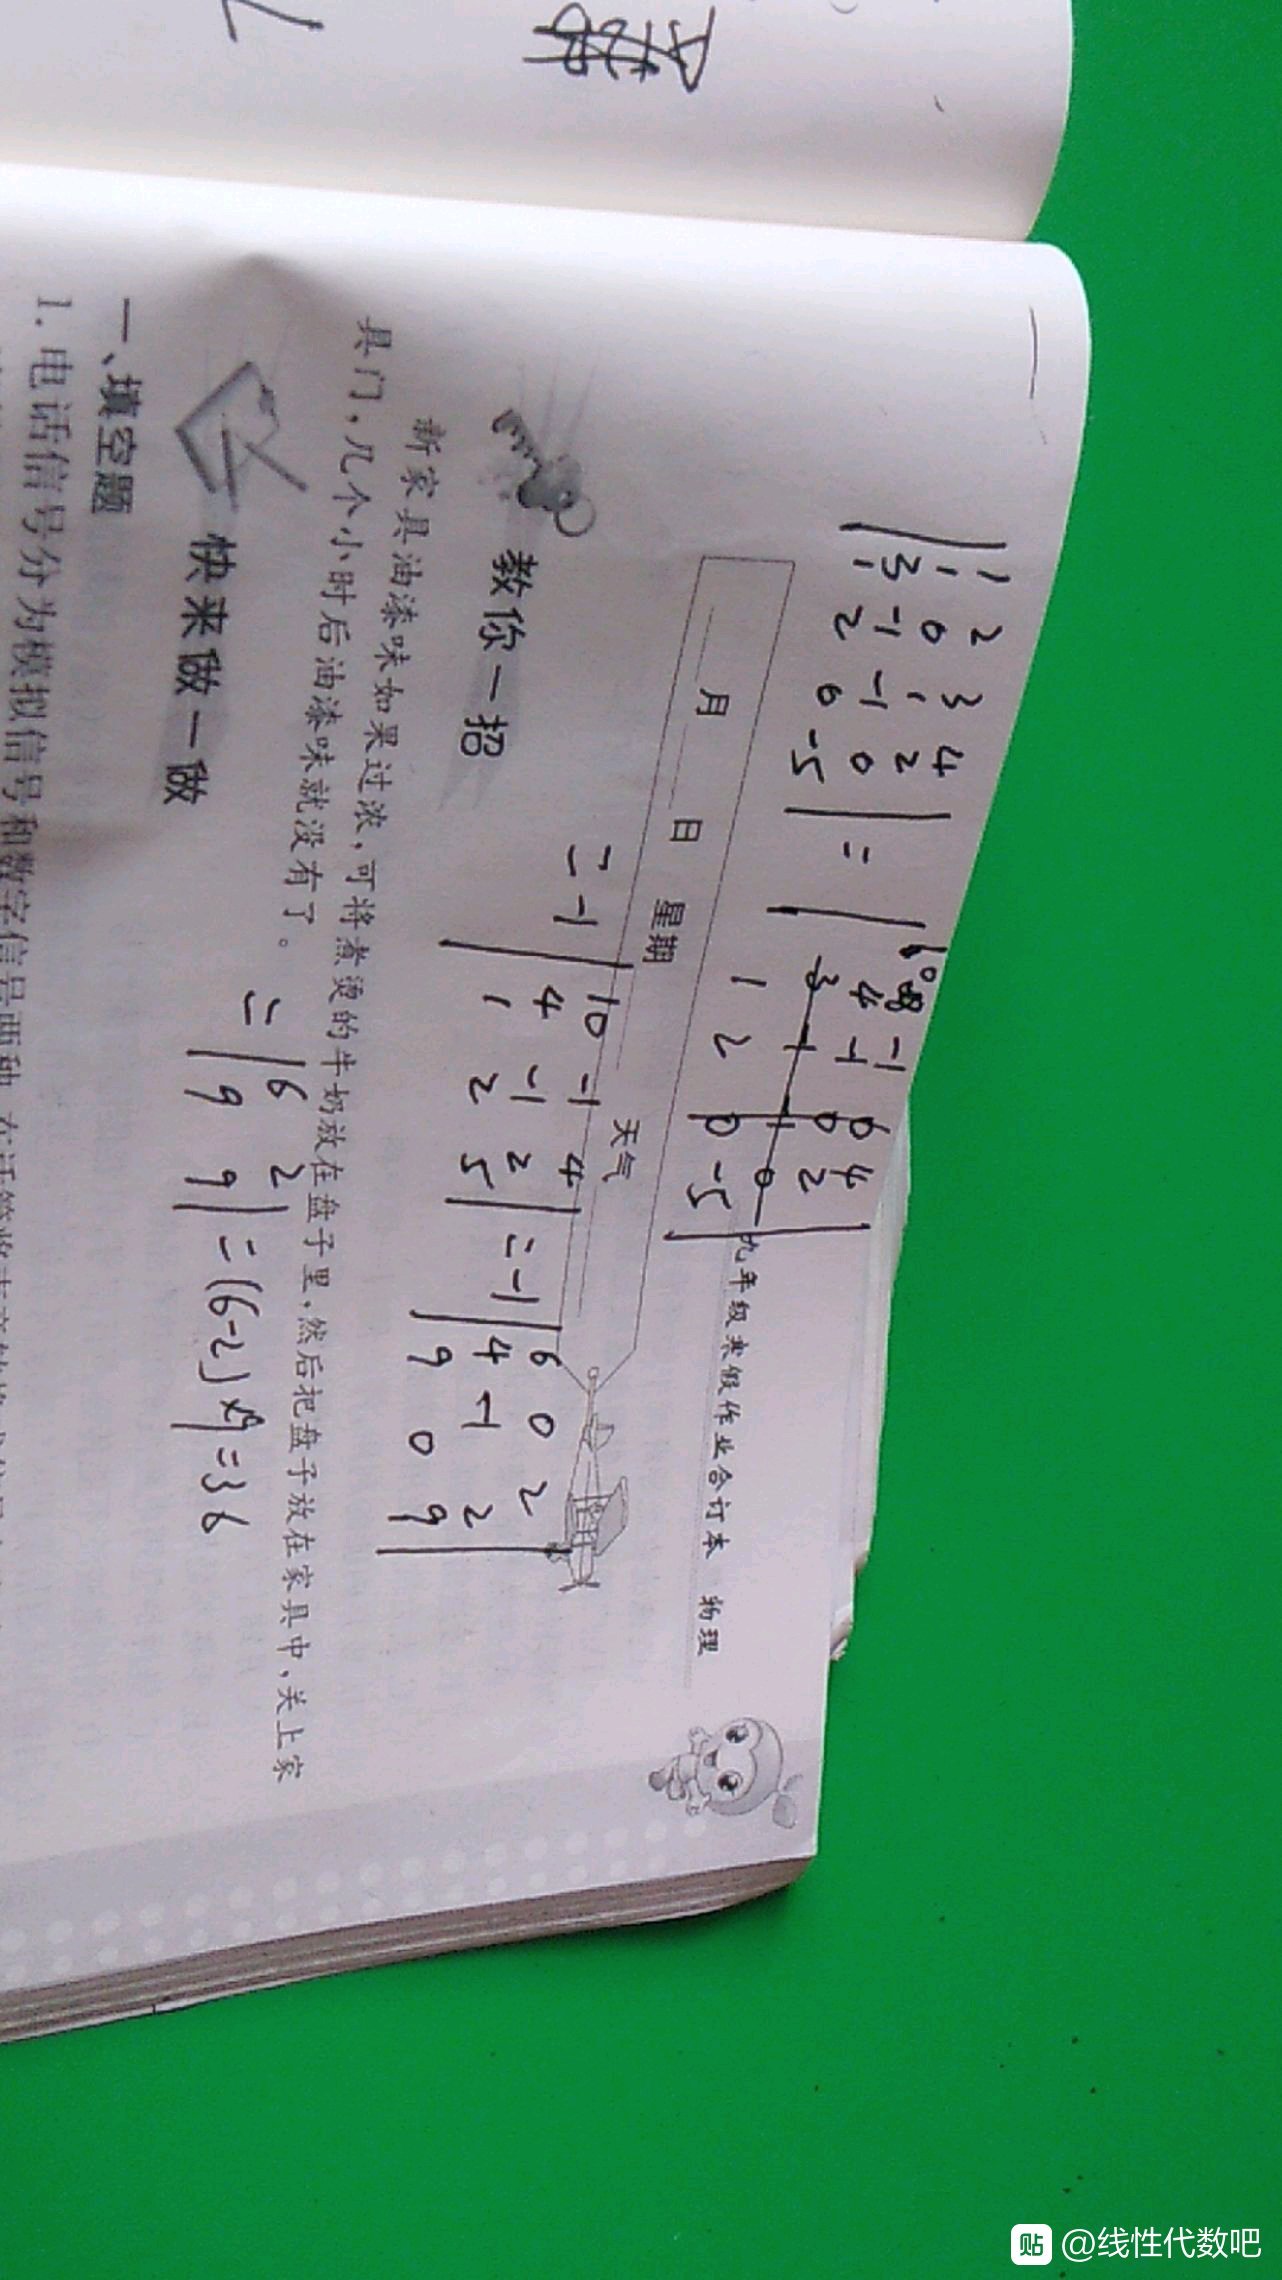 @线性代数吧
贴
1 2 3 4
1 0 1 2
3 -1 -1 0
1 2 0 -5
=
10 -1 0 4
4 -1 0 2
3 -1 -1 0
1 2 0 -5
九年级寒假作业合订本 物理
月 日 星期 天气
= -1
10 -1 4
4 -1 2
1 2 5
= -1
6 0 2
4 -1 2
9 0 9
教你一招
新家具油漆味如果过浓,可将煮烫的牛奶放在盘子里,然后把盘子放在家具中,关上家
具门,几个小时后油漆味就没有了。
=
6 2
9 9
=(6-2)×9=36
快来做一做
一、填空题
1. 电话信号分为模拟信号和数字信号两种